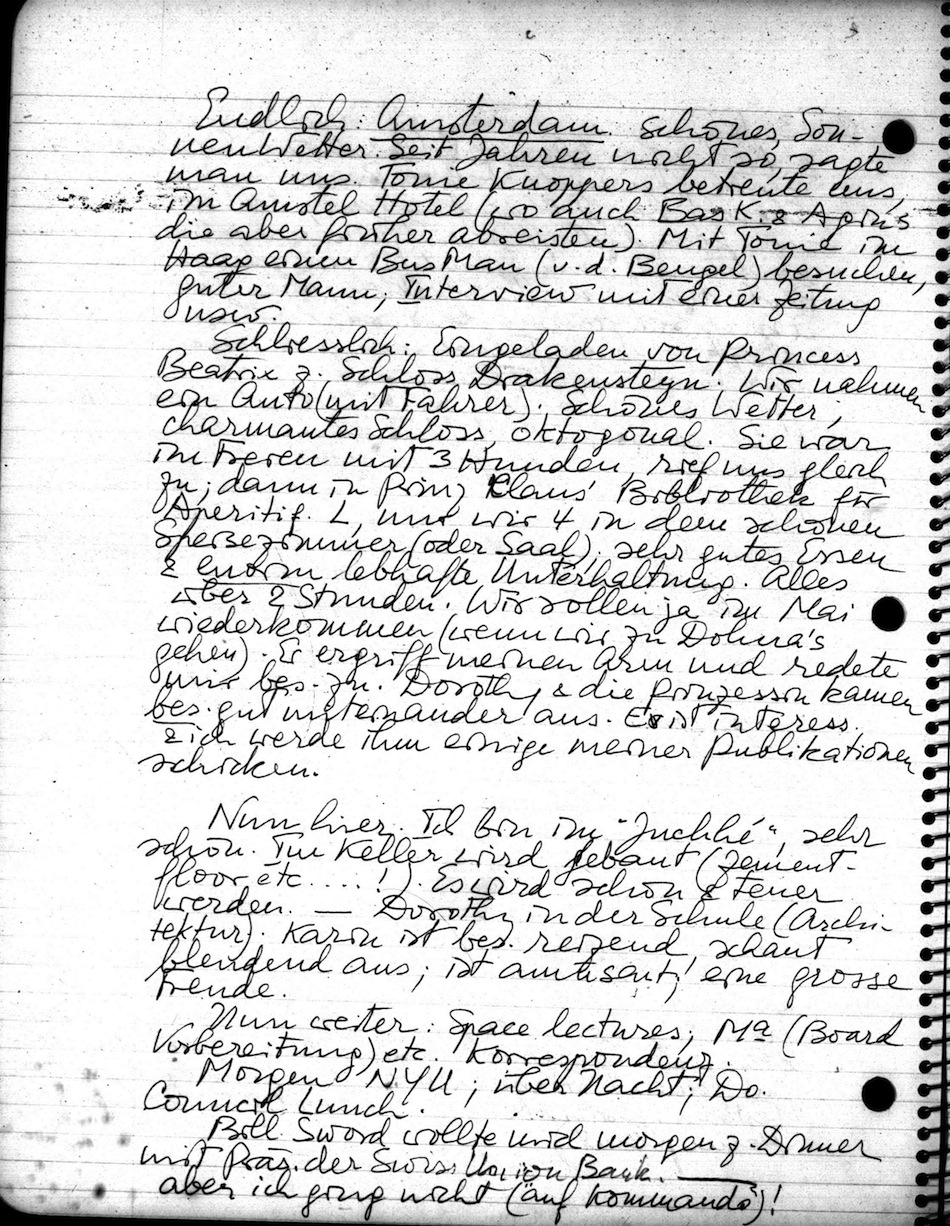 Endlich: Amsterdam. Schönes, Son-
nenWetter. Seit Jahren nicht so, sagte
man uns. Tonie Knoppers betreute uns,
im Amstel Hotel (wo auch Bas K. &
die aber früher abreisten). Mit Tonie im
Haag einen BusMan (v. d. Beugel) besuchen,
guter Mann; Interview mit einer Zeitung
usw.
Schliesslich: Eingeladen von Princess
Beatrix z. Schloss Drakensteyn. Wir nahmen
ein Auto (mit Fahrer). Schönes Wetter,
charmantes Schloss, oktogonal. Sie war
im Freien mit 3 Hunden, rief uns gleich
zu; dann in Prinz Claus' Bibliothek für
Aperitif. L, nur wir 4 in dem schönen
Speisezimmer (oder Saal), sehr gutes Essen
& enorm lebhafte Unterhaltung. Alles
über 2 Stunden. Wir sollen ja im Mai
wiederkommen (wenn wir zu Dohna's
gehen). Er ergriff meinen Arm und redete
mir bes. zu. Dorothy & die Prinzessin kamen
bes. gut miteinander aus. Er ist interess.
& ich werde ihm einige meiner Publikationen
schicken.
Nun hier. Ich bin im "Juchhé", sehr
schön. Im Keller wird gebaut (Zement-
floor etc....!) Es wird schön & teuer
werden. — Dorothy in der Schule (Archi-
tektur). Karin ist bes. reizend, schaut
blendend aus; ist amüsant; eine grosse
Freude.
Nun weiter: Space lectures, Ma (Board
Vorbereitung) etc. Korrespondenz.
Morgen NYU; über Nacht; Do.
Council Lunch.
Bill Sword wollte mich morgen z. Dinner
mit Präs. der Swiss Union Bank. —
aber ich ging nicht (auf Kommando)!